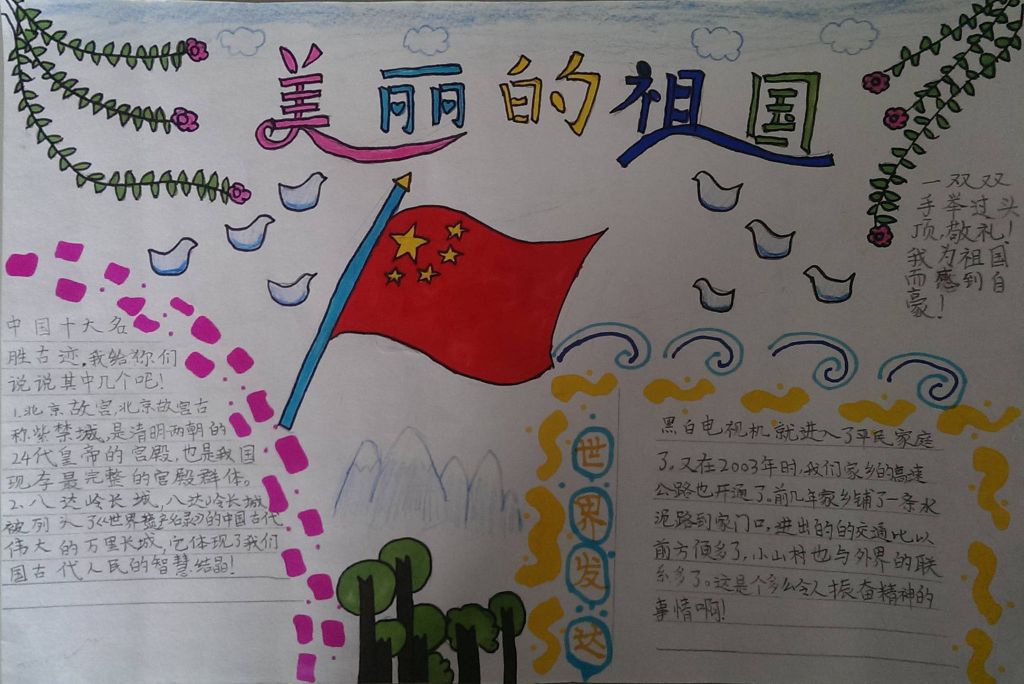 美丽的祖国
一双双
手举过头
顶,敬礼!
我为祖国
而感到自
豪!
中国十大名
胜古迹.我给你们
说说其中几个吧!
1.北京故宫,北京故宫古
称紫禁城,是清明两朝的
24代皇帝的宫殿,也是我国
现存最完整的宫殿群体。
2.八达岭长城,八达岭长城
被列入了《世界遗产名录》的中国古代
伟大的万里长城,它体现了我们
国古代人民的智慧结晶!
世界发达
黑白电视机就进入了平民家庭
了。又在2003年时,我们家乡的高速
公路也开通了。前几年家乡铺了一条水
泥路到家门口,进出的的交通比以
前方便多了,小山村也与外界的联
系多了。这是个多么令人振奋精神的
事情啊!